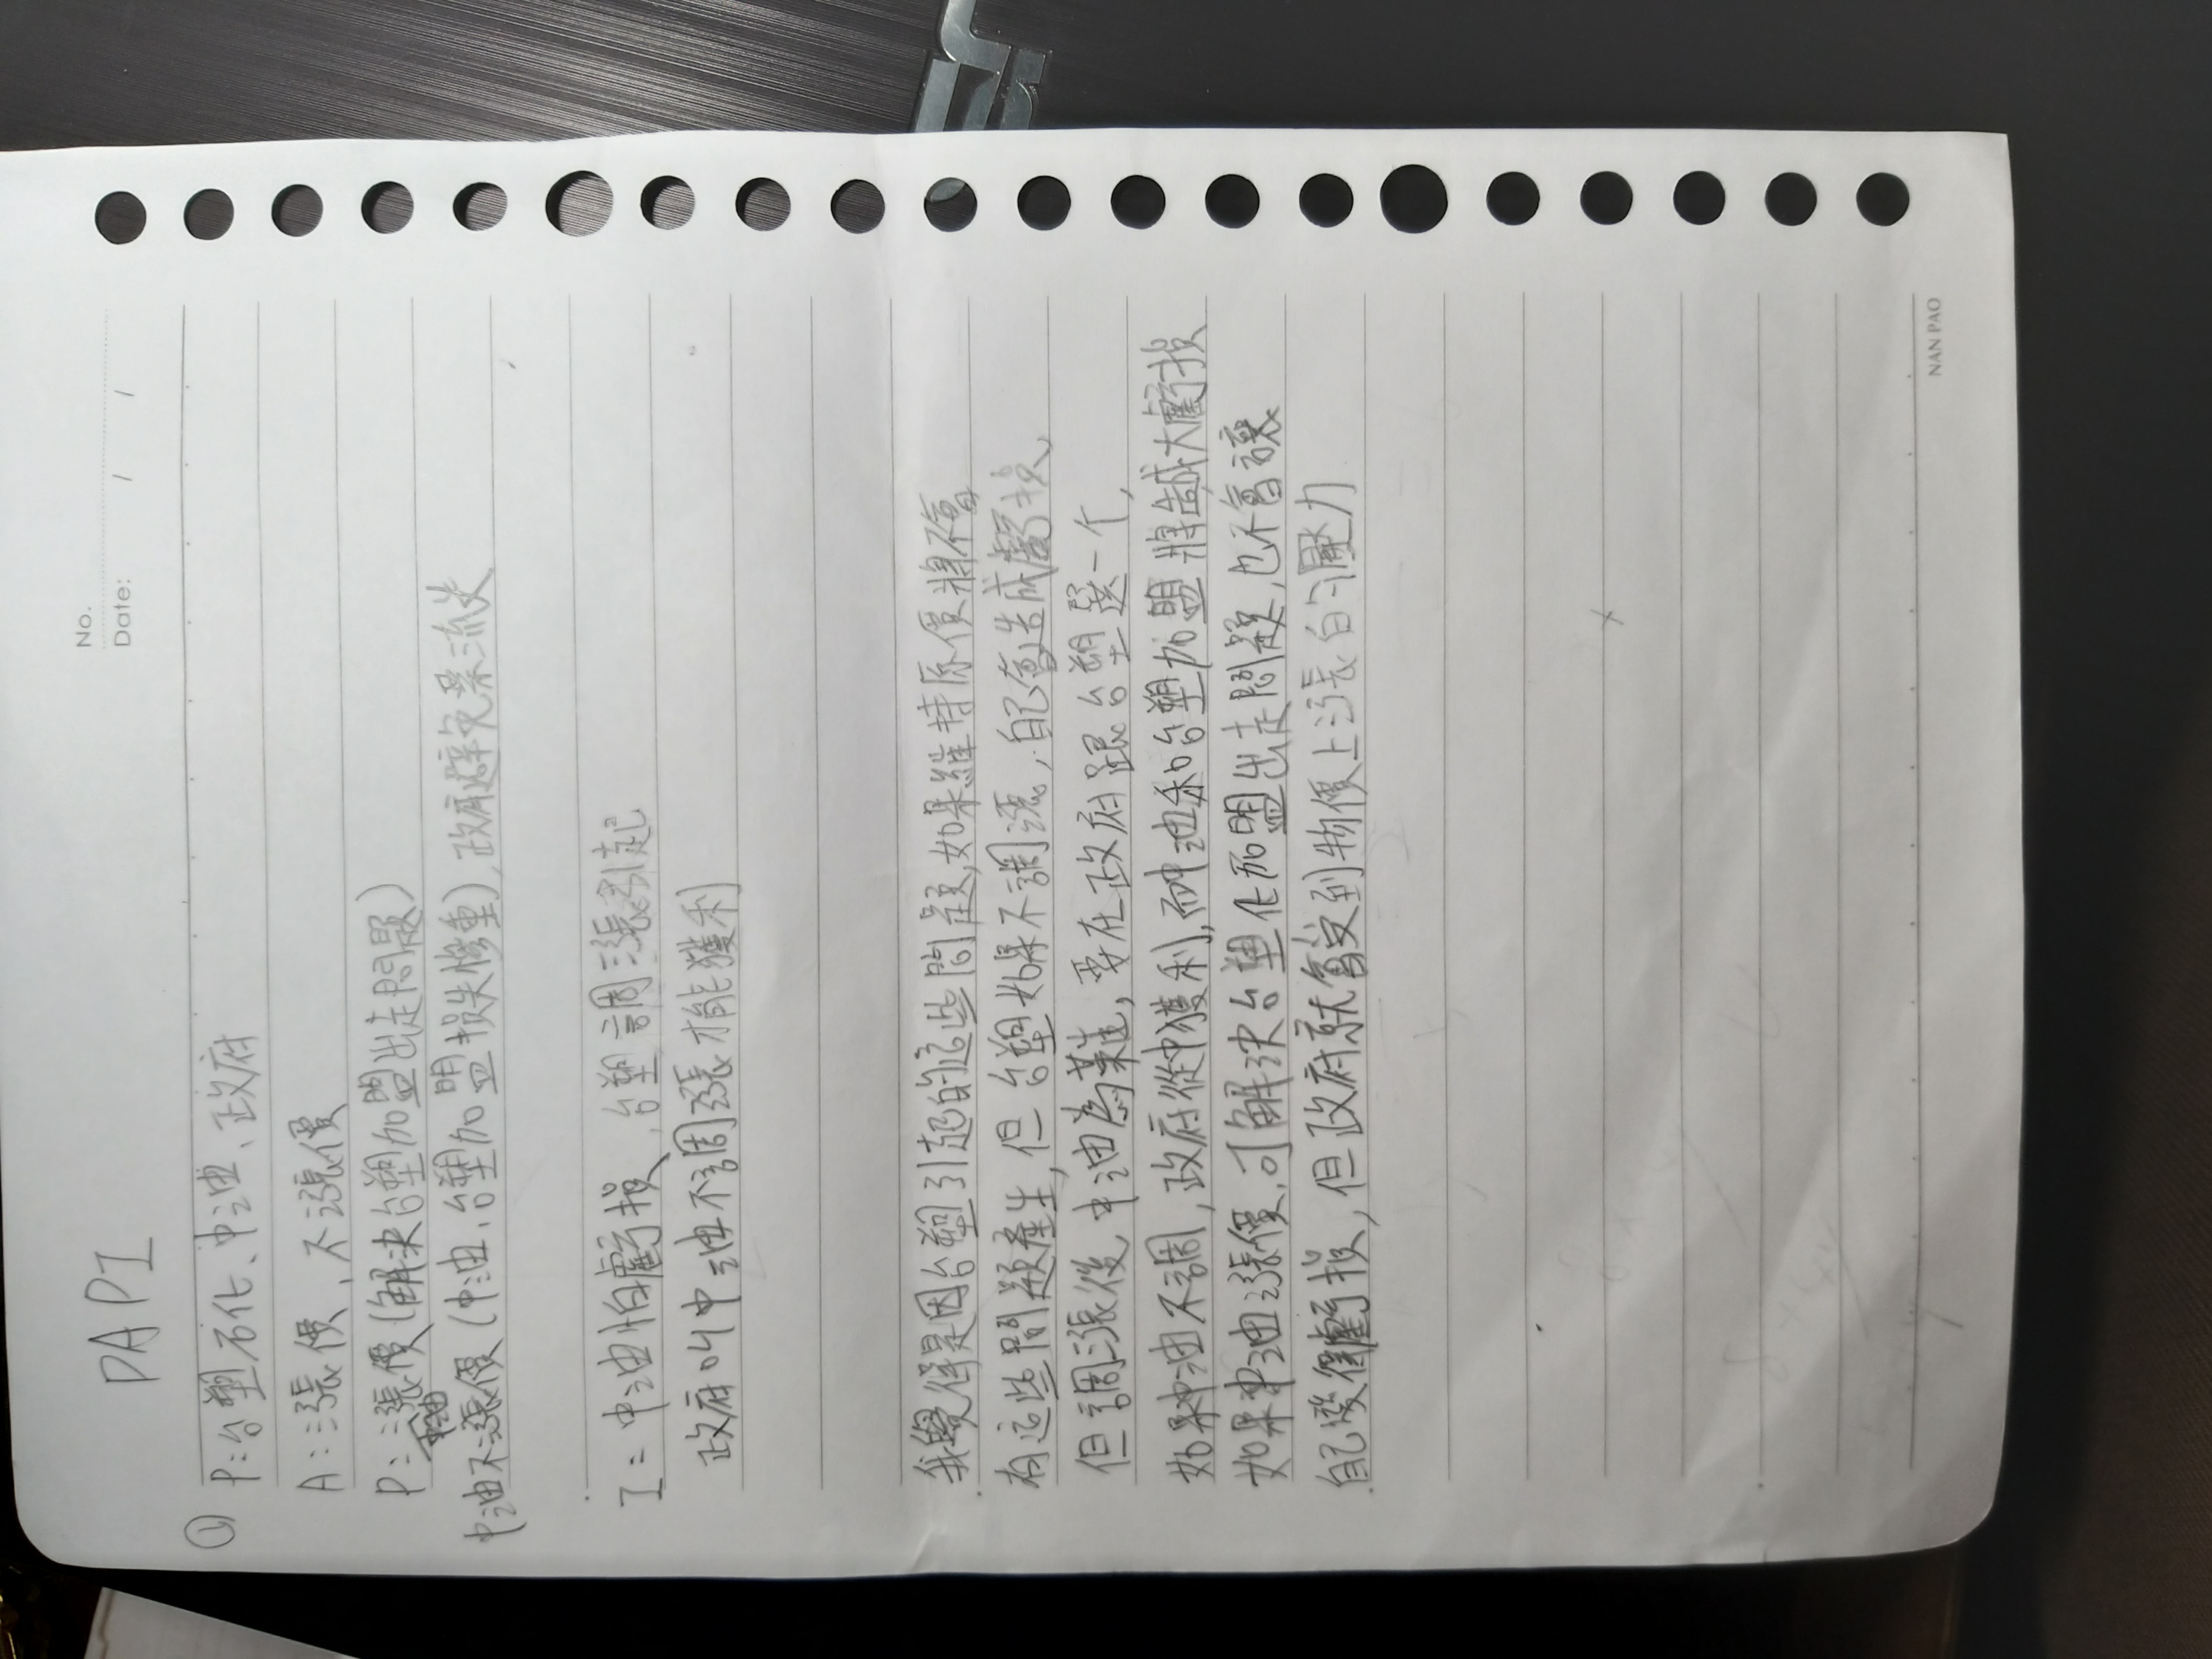 PAPI
No.
Date: / /
① P:台塑石化、中油、政府
A:漲價,不漲價
P:漲價(解決台塑加盟出走問題)
中油
中油不漲價(中油,台塑加盟損失慘重),政府避免票流失
I:中油怕虧損,台塑調漲引起
政府叫中油不調漲才能獲利
我覺得是因台塑引起的這些問題,如果維持原價將不會
有這些問題產生,但台塑如果不調漲,自己會造成虧損,
但調漲後,中油為難,要在政府跟台塑選一個,
如果中油不調,政府從中獲利,而中油和台塑加盟將造成大虧損
如果中油漲價,可解決台塑化加盟出走問題,也不會讓
自己變得虧損,但政府就會受到物價上漲的壓力
NAN PAO